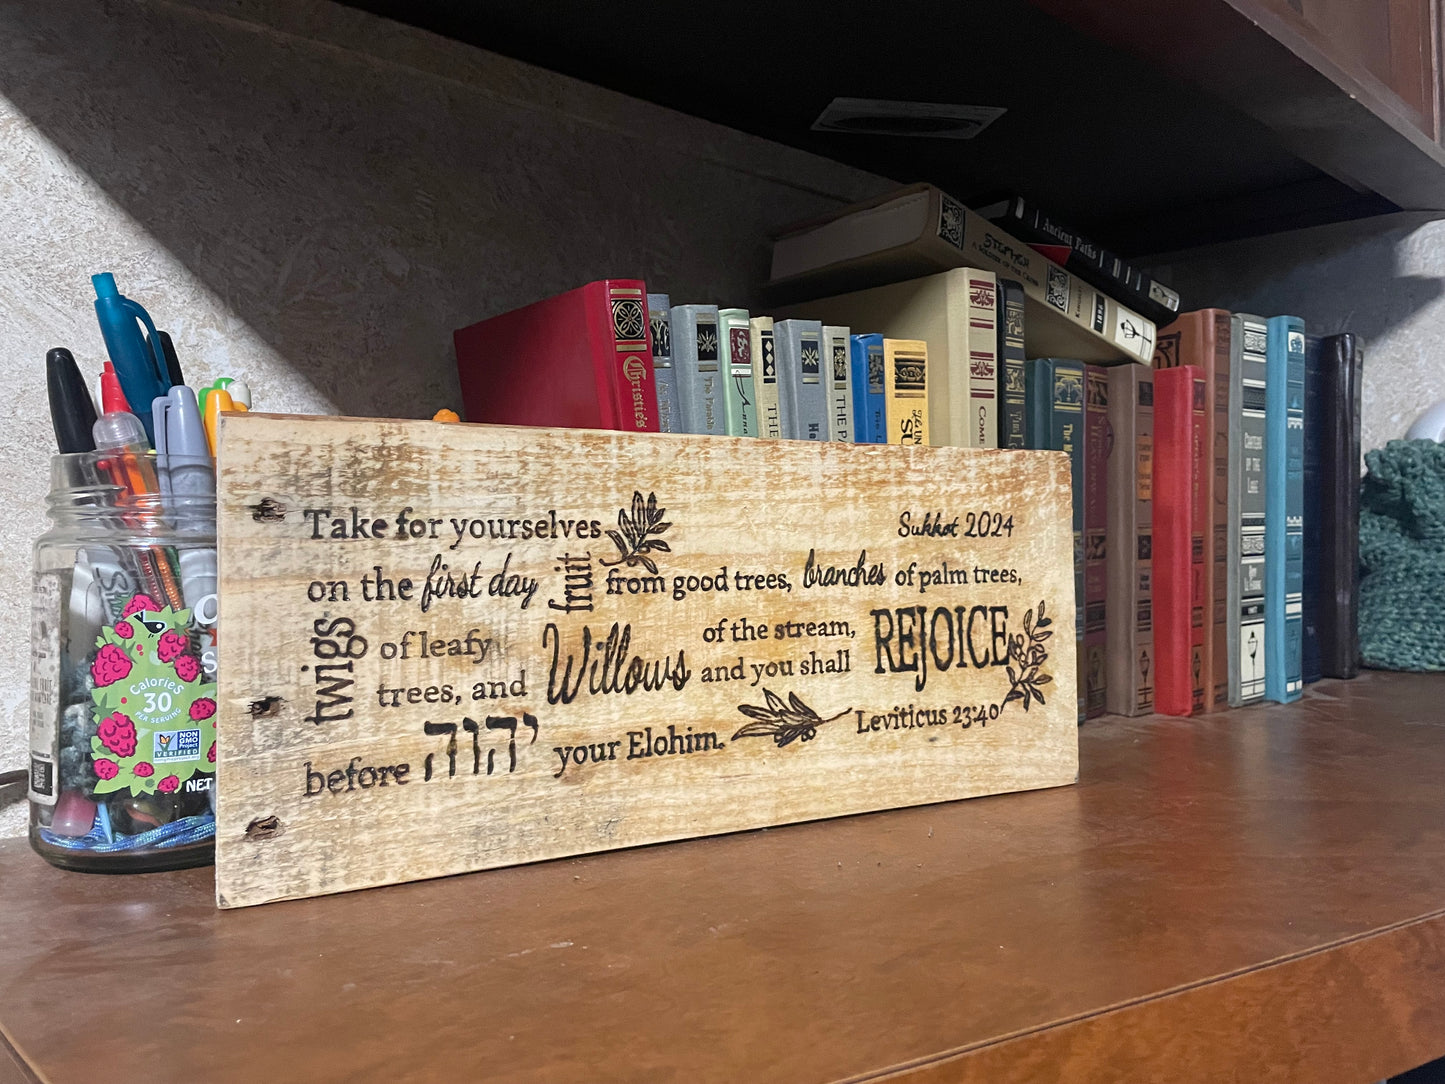 Sukkot 2024
Take for yourselves
on the first day fruit from good trees, branches of palm trees,
twigs of leafy trees, and Willows of the stream, and you shall REJOICE
before יהוה your Elohim.
Leviticus 23:40
Calories
30
PER SERVING
NON
GMO
Project
VERIFIED
NET
Christie's
THE
THE
COME
A SOLDIER OF THE CROSS
Ancient Paths